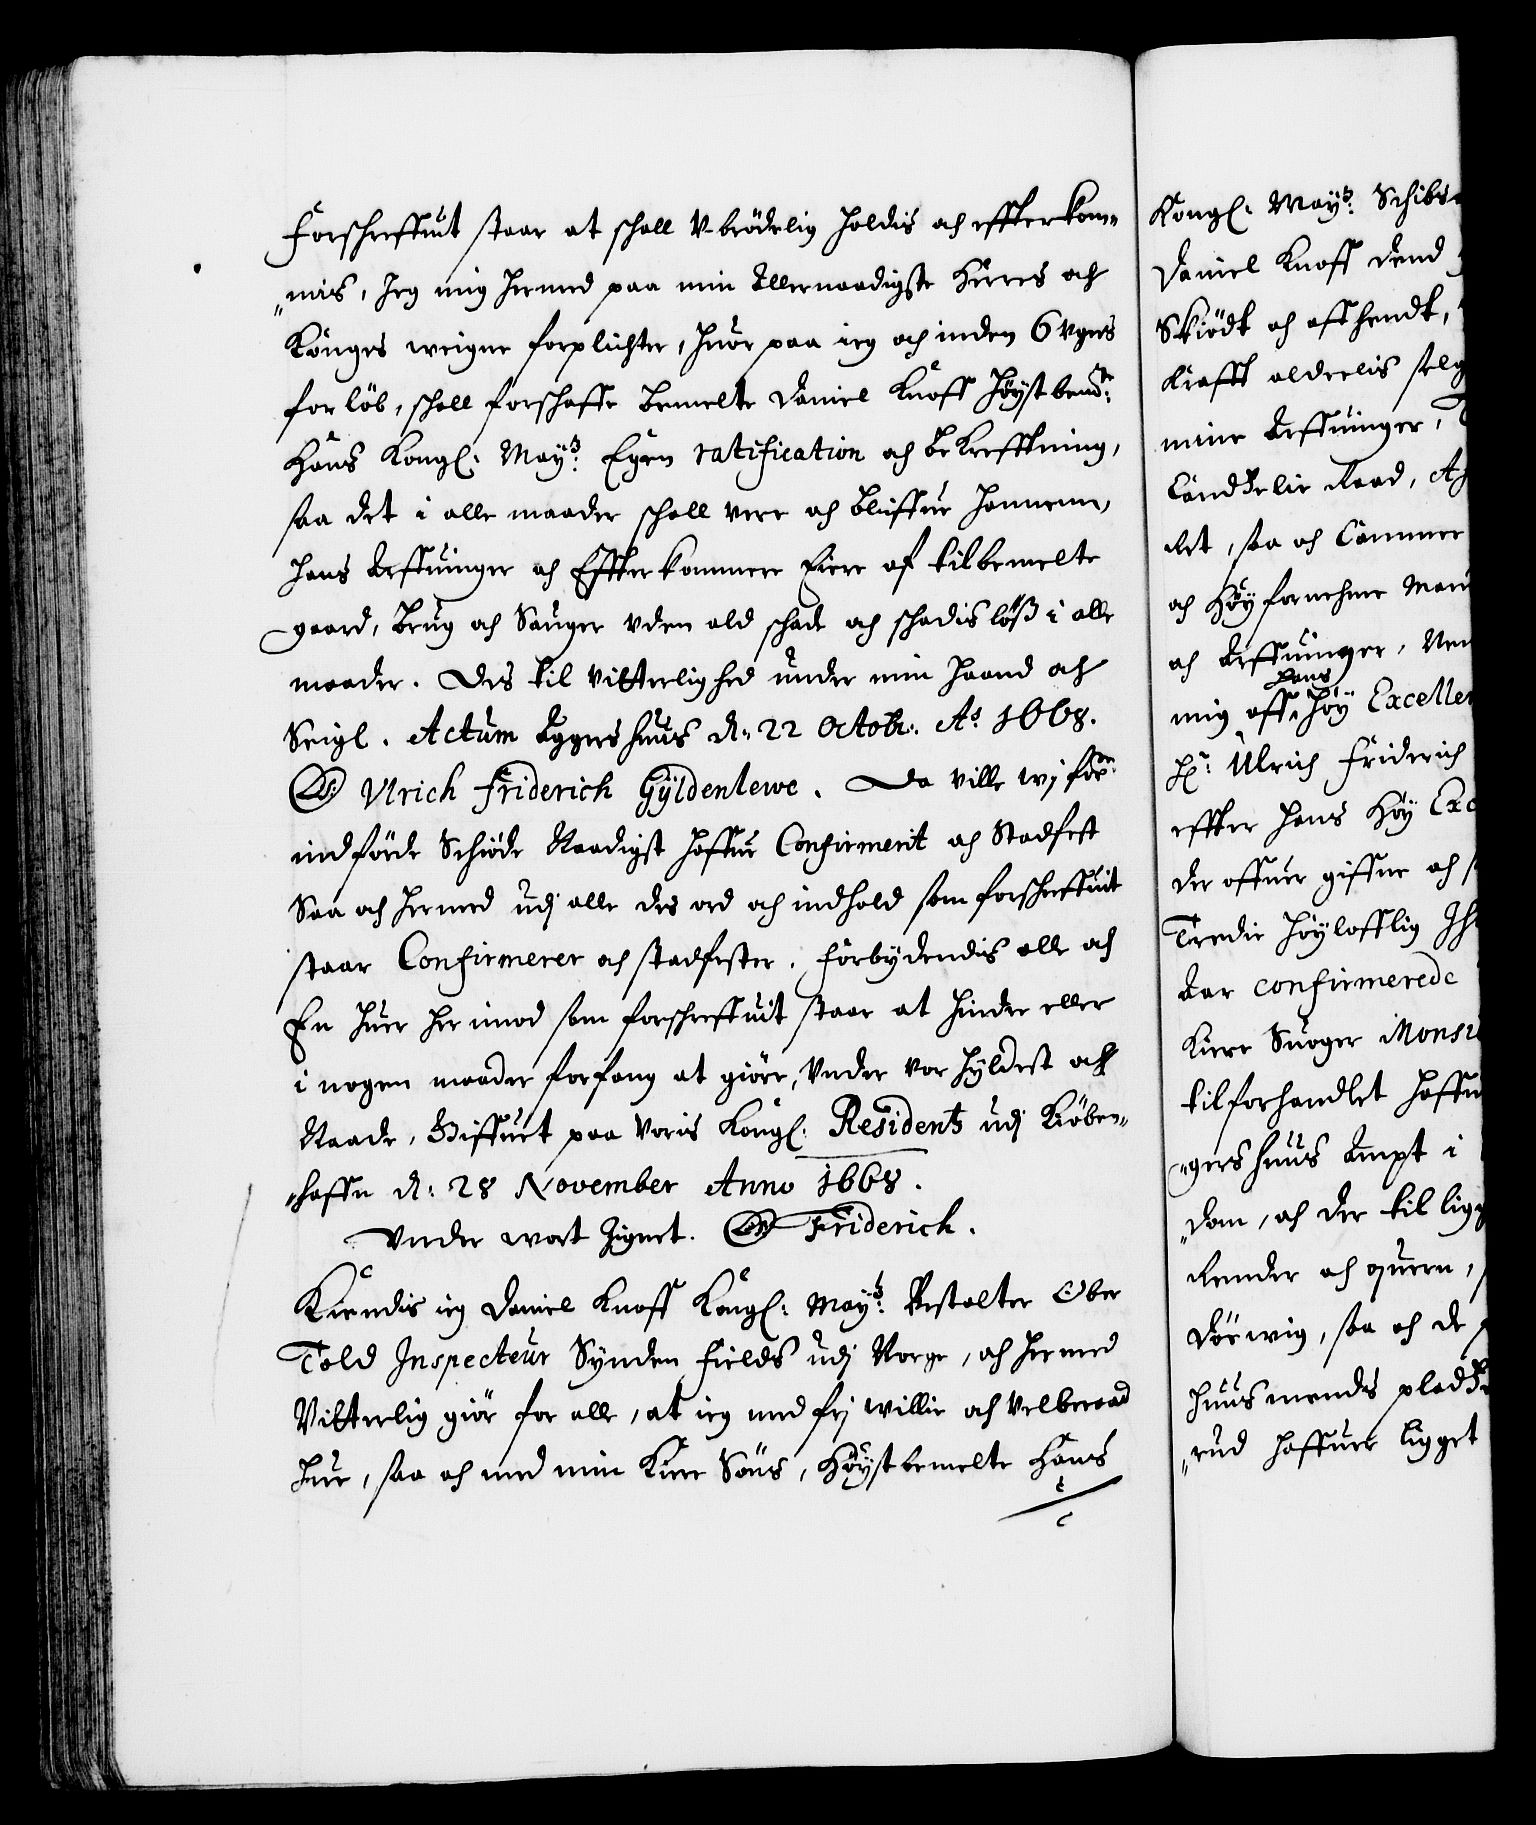 Forschreffuit staar at schall Vbrödelig holdis och effterkom„
„mis, Jeg mig hermed paa min Allernaadigste Herres och
Konges weigne forplichter, huor paa ieg och inden 6 vgers
forløb, schall forschaffe bemelte Daniel Knoff Höystbemte:
Hans Kongl: Mayts: Egen ratification och bekreffting,
saa det i alle maader schall vere och bliffue hannem,
hans Arffuinger och Effterkommere Eiere af tilbemelte
gaard, brug och Sauger vden ald schade och schadislöß i alle
maader. Dis til vitterlighed under min haand och
Seigl. Actum Aggershuus d: 22 Octobr: Ao 1668.
Ulrich Friderich Gyldenlewe. Da ville wj for:ne
indförde Schiöde Naadigst haffue Confirmerit och Stadfest
Saa och hermed udj alle des ord och indhold som forschreffuit
staar Confirmerer och stadfester. Forbydendis alle och
En huer her imod som forschreffuit staar at hindre eller
i nogen maader forfang at giöre, Vnder vor hyldest och
Naade, Giffuet paa Voris Kongl: Residentz udj Kiöben„
„haffn d: 28 November Anno 1668.
Vnder wort Zignet. Friderich.
Kiendis ieg Daniel Knoff Kongl: Mayts: Bestalter Ober
Told Inspecteur Synden fields udj Norge, och hermed
Vitterlig giör for alle, at ieg med frj willie och velberaad
hue, saa och med min Kiere Söns, Höystbemelte Hans
Kongl: Mayts: Schibs
Daniel Knoff dend
Skiödt och affhendt,
Krafft alderlis selg
mine Arffuinger,
Candzelie Raad,
ret, saa och Cammer
och Höyfornehme
och Arffuinger,
mig aff hans Höy Excellen
Hr: Ulrich Friderich
effter hans Höy Exc
der offuer giffne och
Tredie Höylofflig
Aar confirmerede
Kiere Suoger Monsi
tilforhandlet haffu
„gershuus Ampt i
„dom, och der til ligg
Render och quern,
Dörwig, saa och de
huusmends pladz
„rud haffuer ligget